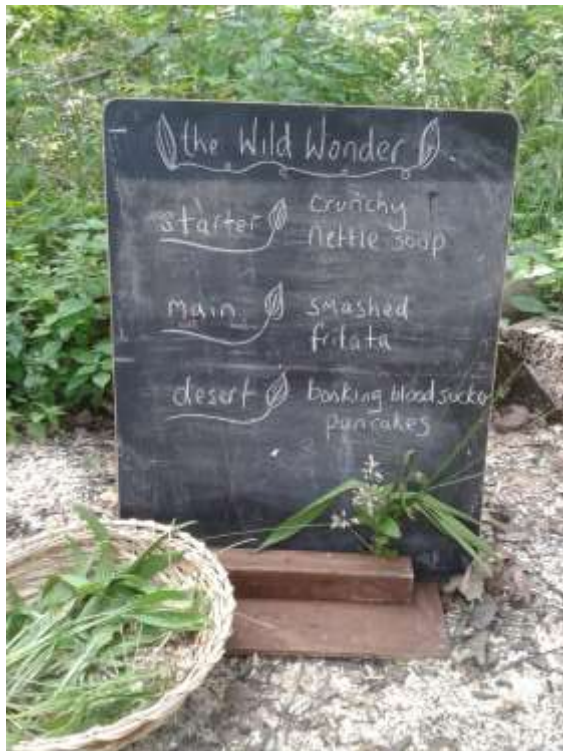 the Wild Wonder
starter
crunchy
nettle soap
main
smashed
fritata
desert
bonking bloodsucker
pancakes